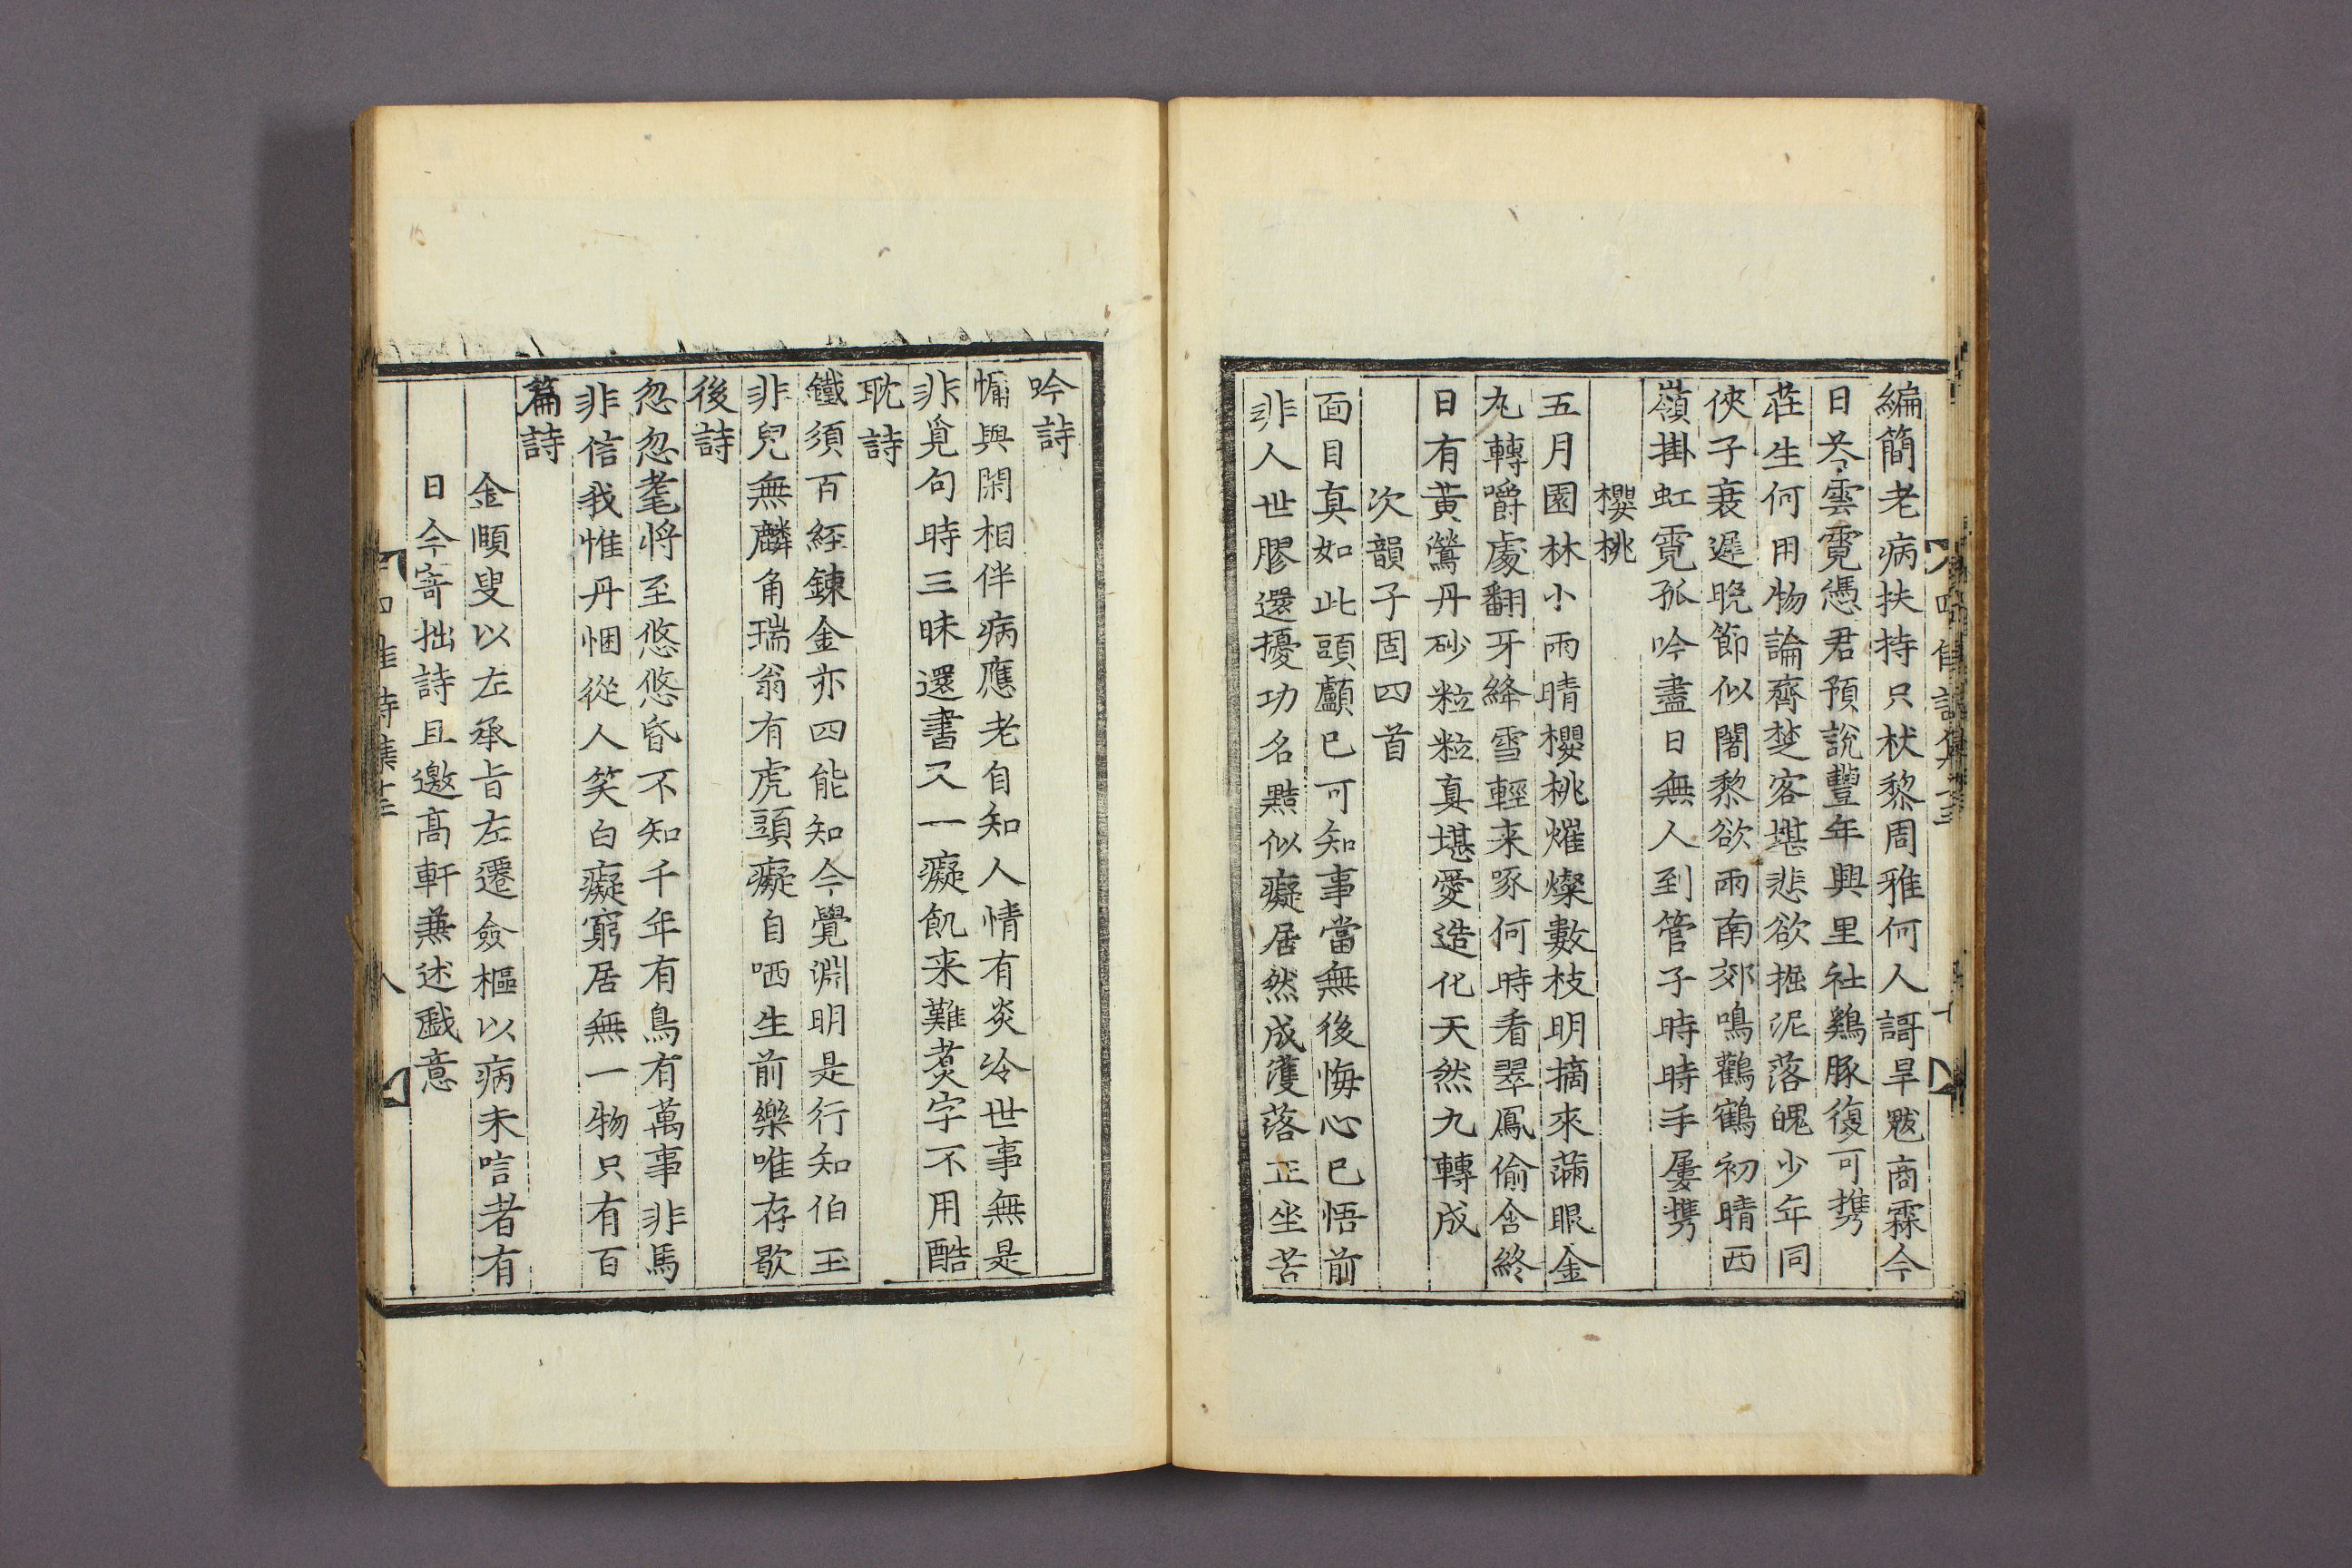 編簡老病扶持只杖黎周雅何人謌旱魃商霖今
日㳟雲霓憑君預說豐年興里社鷄豚復可携
莊生何用物論齊楚客堪悲欲掘泥落魄少年同
俠子衰遲晚節似闍黎欲雨南郊鳴鸛鶴初晴西
嶺掛虹霓孤吟盡日無人到管子時時手屢携
櫻桃
五月園林小雨晴櫻桃燿燦數枝明摘來滿眼金
丸轉嚼處翻牙絳雪輕来啄何時看翠鳳偷含終
日有黄鶯丹砂粒粒真堪愛造化天然九轉成
次韻子固四首
面目真如此頭顱已可知事當無後悔心已悟前
非人世膠還擾功名黠似癡居然成濩落正坐苦
吟詩
慵與閑相伴病應老自知人情有炎冷世事無是
非覓句時三昧還書又一癡飢来難煑字不用酷
耽詩
鐵須百經鍊金亦四能知今覺淵明是行知伯玉
非兒無麟角瑞翁有虎頭癡自哂生前樂唯存歇
後詩
忽忽耄將至悠悠昏不知千年有鳥有萬事非馬
非信我惟丹悃從人笑白癡窮居無一物只有百
篇詩
金頤叟以左承旨左遷僉樞以病未唁者有
日今寄拙詩且邀髙軒兼述戱意